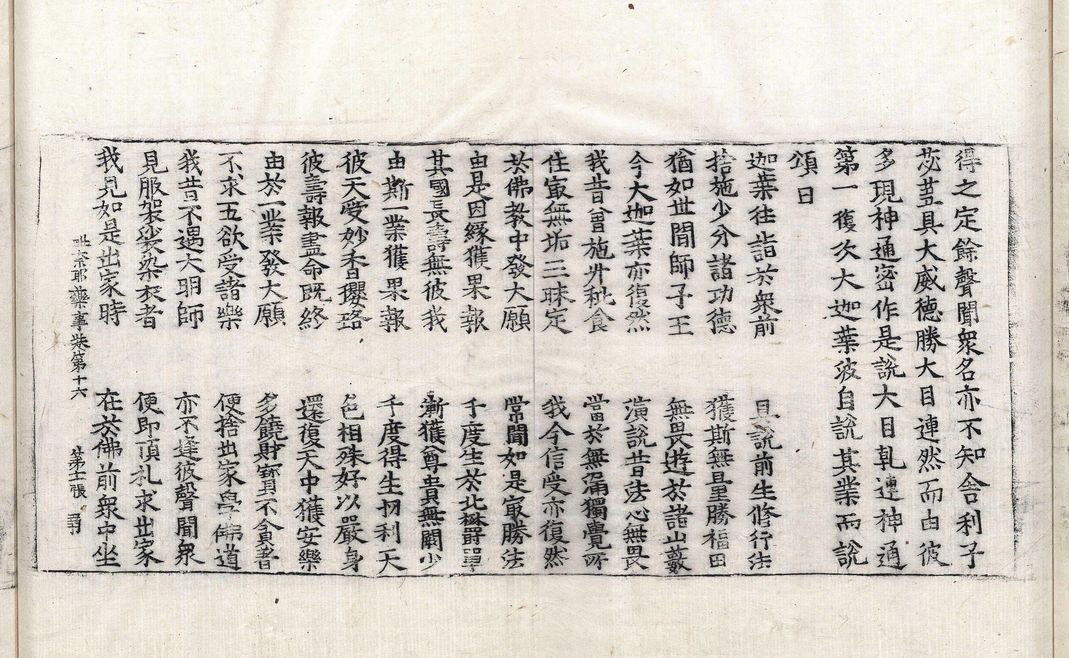 得之定餘聲聞衆名亦不知舍利子
苾蒭具大威德勝大目連然而由彼
多現神通密作是説大目乹連神通
第一復次大迦葉彼自說其業而說
頌曰
迦葉往詣於衆前 具說前生修行法
捨施少分諸功德 獲斯無量勝福田
猶如世間師子王 無畏遊於諸山藪
今大迦葉亦復然 演說昔法心無畏
我昔曾施升秕食 當於無漏獨覺所
住寂無垢三昧定 我今信受亦復然
於佛教中發大願 常聞如是寂勝法
由是因緣獲果報 千度生於北欝單
其國長壽無彼我 漸獲尊貴無闕少
由斯一業獲果報 千度得生忉利天
彼天受妙香瓔珞 色相殊好以嚴身
彼壽報盡命既終 還復天中獲安樂
由於一業發大願 多饒財寶不貪著
不求五欲受諸樂 便捨出家學佛道
我昔不遇大明師 亦不逢彼聲聞衆
見服袈裟染衣者 便即頂礼求出家
我見如是出家時 在於佛前衆中坐
奈耶藥事卷第十六 第十二張